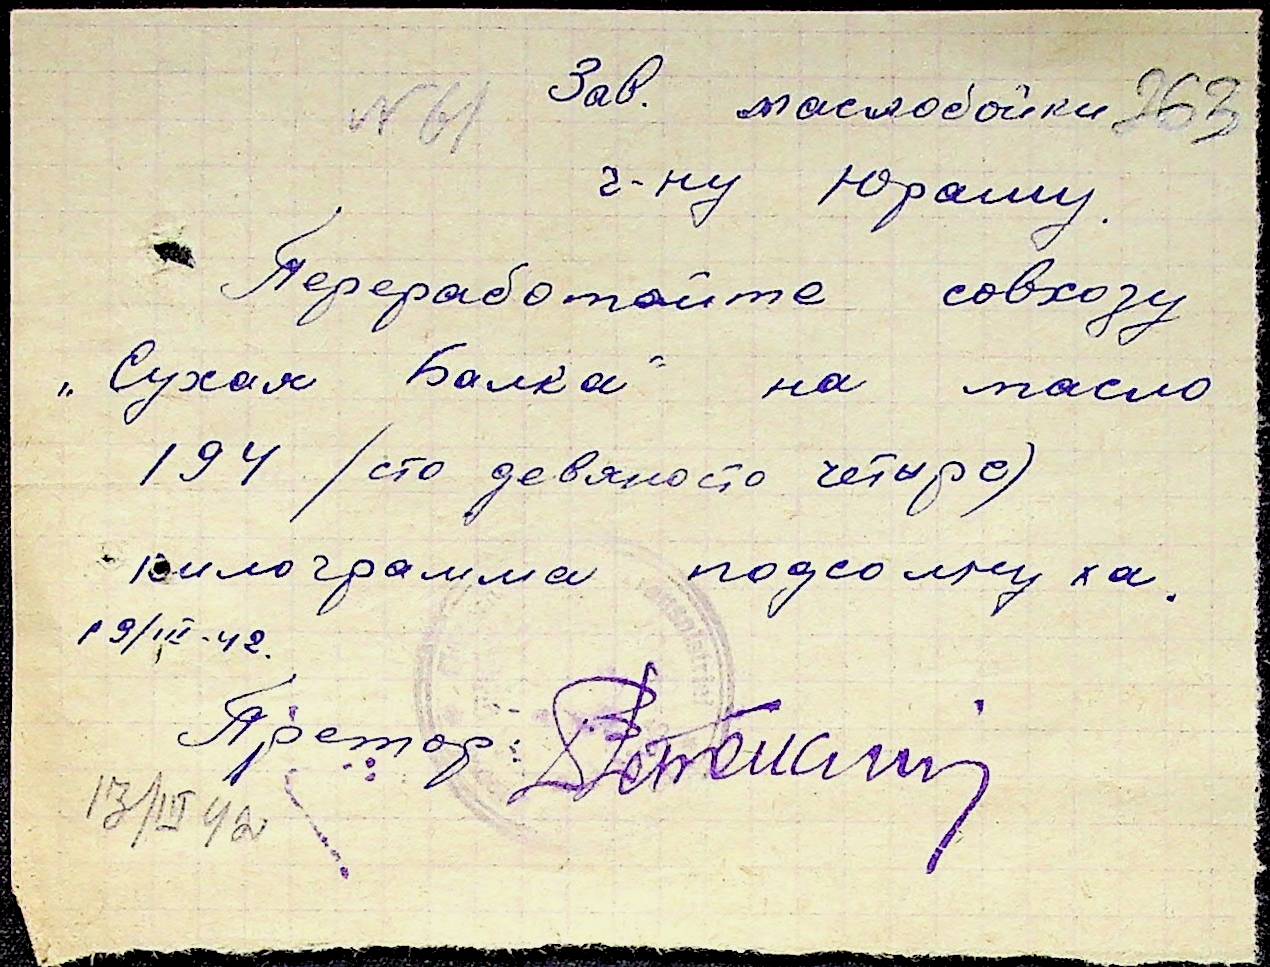 N 61
Зав. маслобойки 263
г-ну Юрашу.
Переработайте совхозу
„Сухая Балка" на масло
194 /сто девяносто четыре)
килограмма подсолнуха.
19/III-42.
Претор:
13/III 42